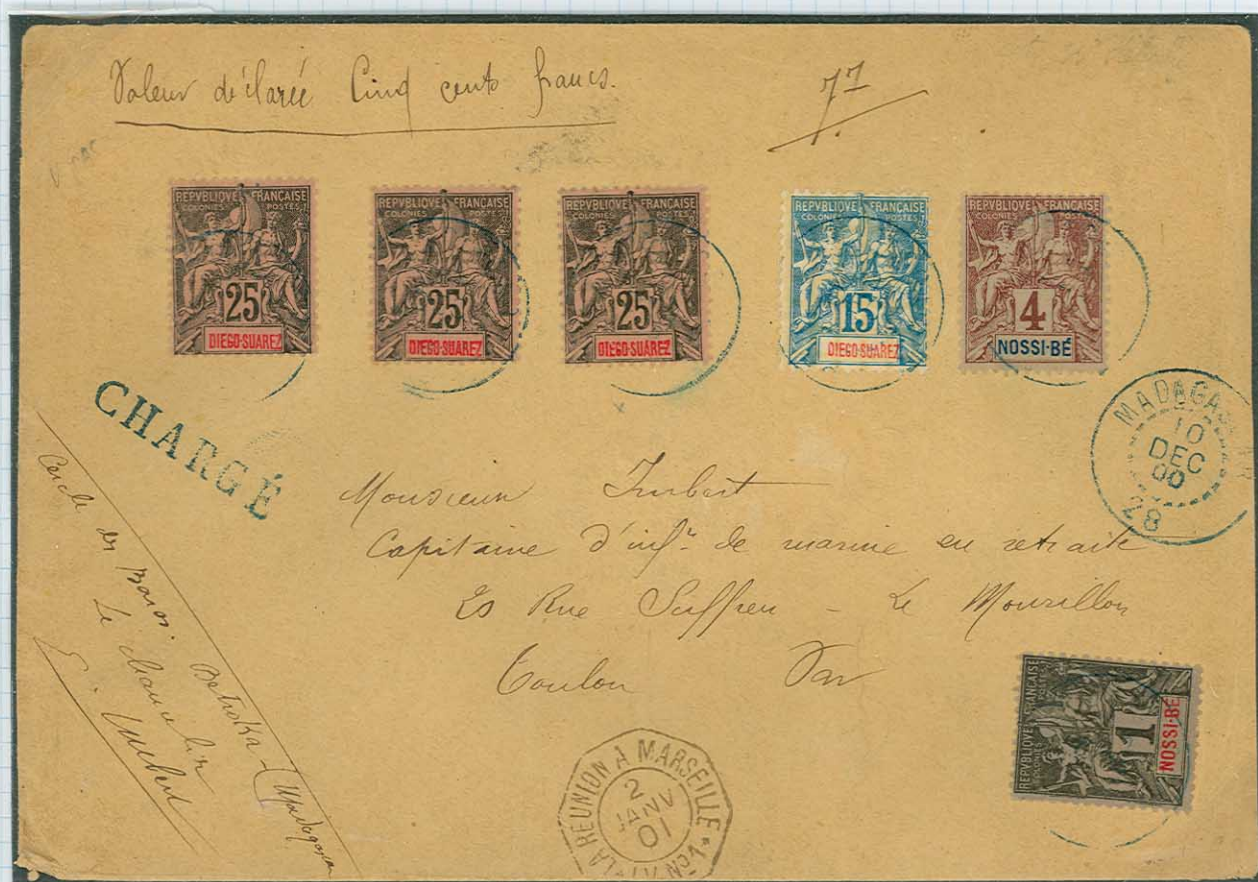 Valeur déclarée Cinq cents francs.
77
REPVBLIQVE FRANÇAISE
COLONIES POSTES
25
DIEGO-SUAREZ
REPVBLIQVE FRANÇAISE
COLONIES POSTES
25
DIEGO-SUAREZ
REPVBLIQVE FRANÇAISE
COLONIES POSTES
25
DIEGO-SUAREZ
REPVBLIQVE FRANÇAISE
COLONIES POSTES
15
DIEGO-SUAREZ
REPVBLIQVE FRANÇAISE
COLONIES POSTES
4
NOSSI-BÉ
CHARGÉ
MADAGASCAR
10
DEC
00
28
Monsieur Imbert
Capitaine d'inf.re de marine en retraite
20 Rue Suffren - Le Mourillon
Toulon Var
Cercle des Baras. Betroka - (Madagascar
Le chancelier
E. Imbert
REPVBLIQVE FRANÇAISE
COLONIES POSTES
1
NOSSI-BÉ
LA RÉUNION A MARSEILLE
2
JANV
01